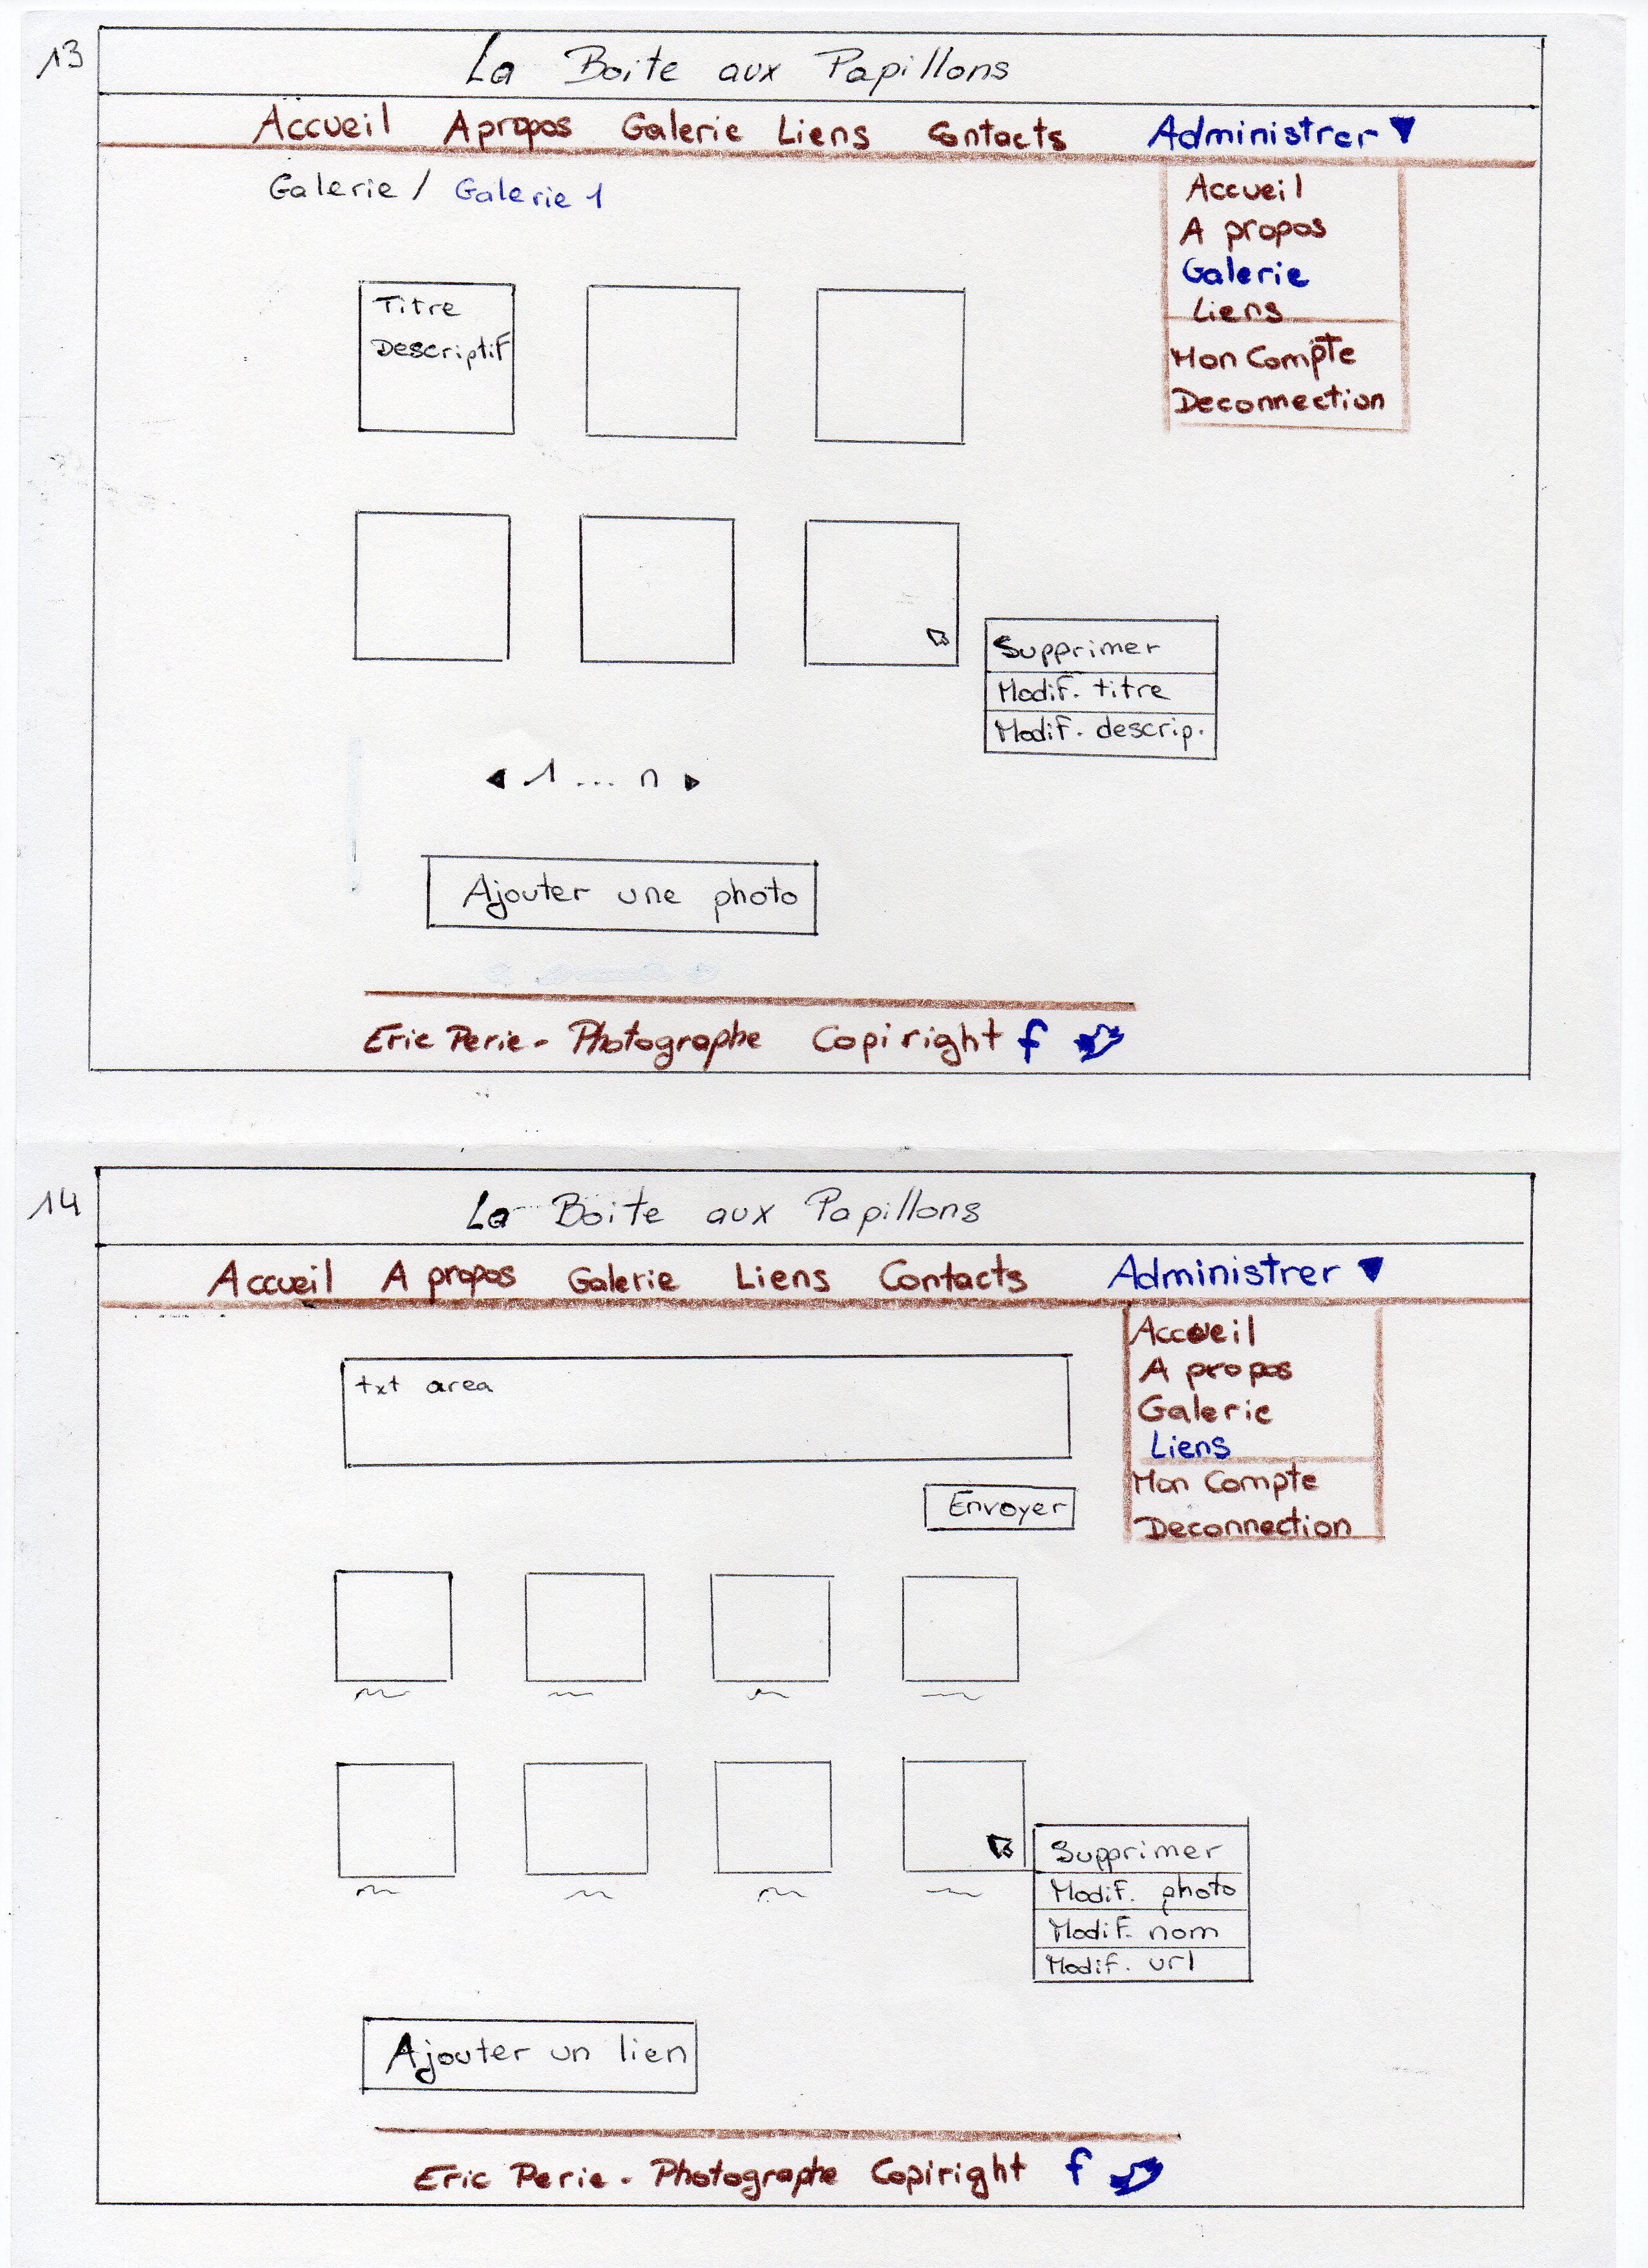 13
La Boite aux Papillons
Accueil A propos Galerie Liens Contacts Administrer ▼
Galerie / Galerie 1
Accueil
A propos
Galerie
Liens
Mon Compte
Deconnection
Titre
Descriptif
Supprimer
Modif. titre
Modif. descrip.
◀ 1 ... n ▶
Ajouter une photo
Eric Perie - Photographe Copiright f
14
La Boite aux Papillons
Accueil A propos Galerie Liens Contacts Administrer ▼
Accueil
A propos
Galerie
Liens
Mon Compte
Deconnection
txt area
Envoyer
Supprimer
Modif. photo
Modif. nom
Modif. url
Ajouter un lien
Eric Perie - Photographe Copiright f